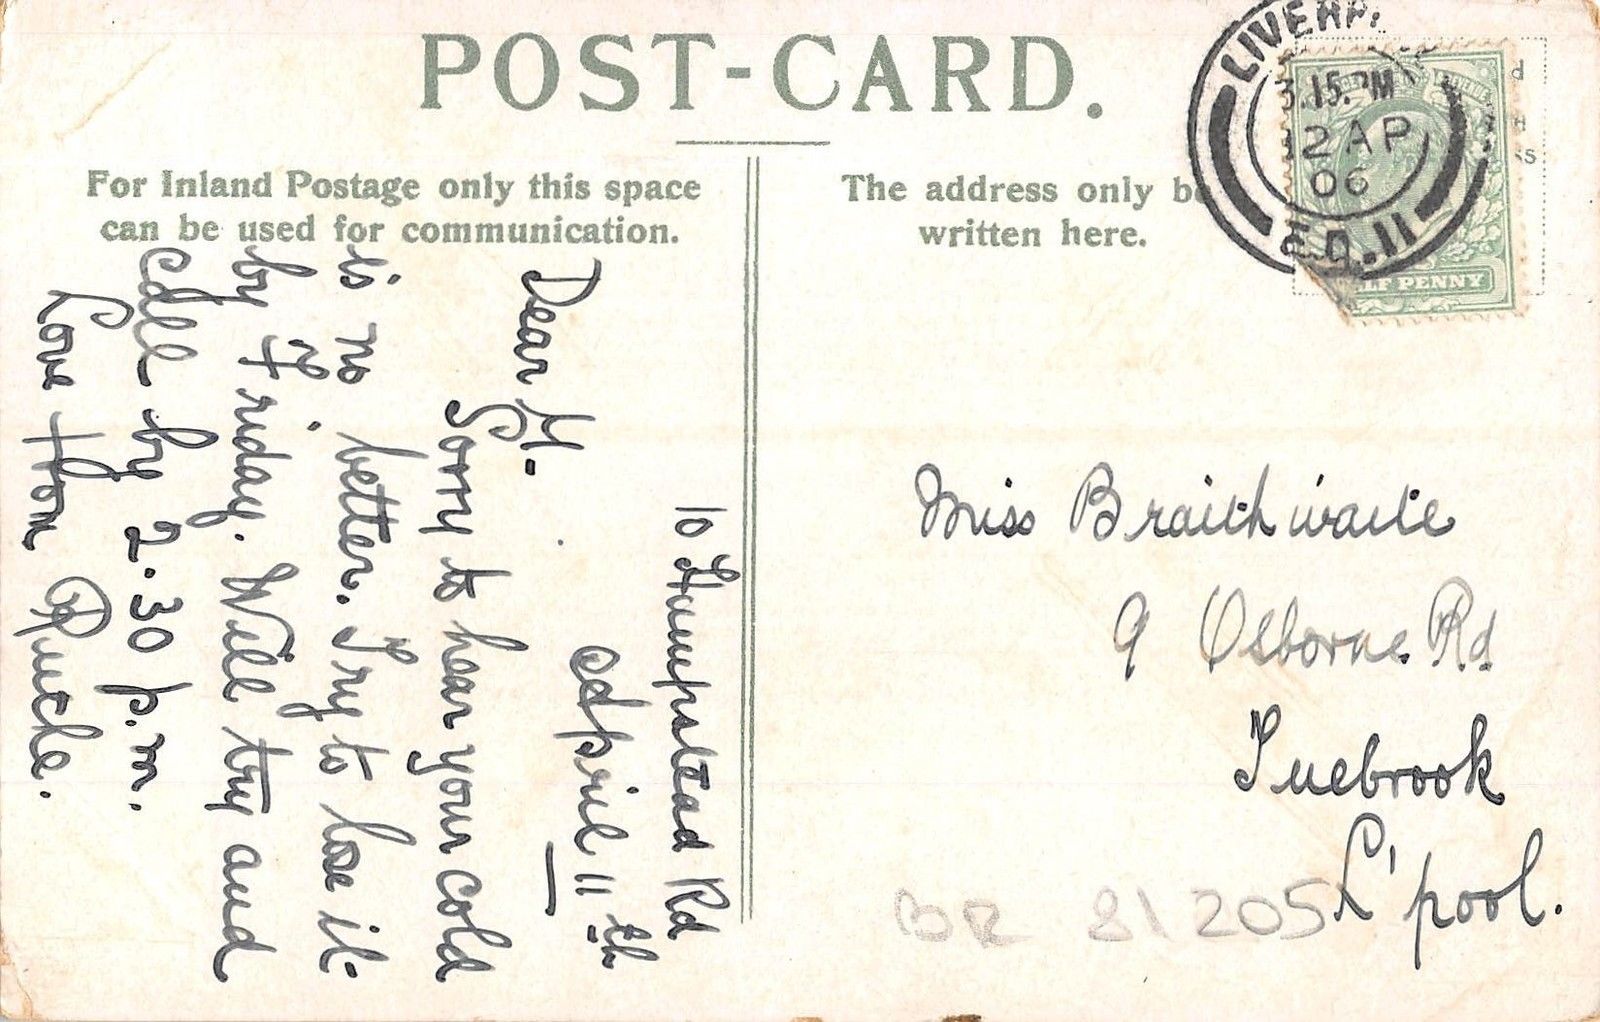 POST-CARD.
For Inland Postage only this space
can be used for communication.
The address only be
written here.
LIVERP
3.15.PM
12 AP
06
E.D.11
LF PENNY
10 Hampstead Rd
April 11th
Dear H-
Sorry to hear your cold
is no better. Try to lose it
by Friday. Will try and
call by 2.30 p.m.
Love from Ruthe.
Miss Braithwaite
9 Osborne Rd
Tuebrook
L'pool.
BR 81205